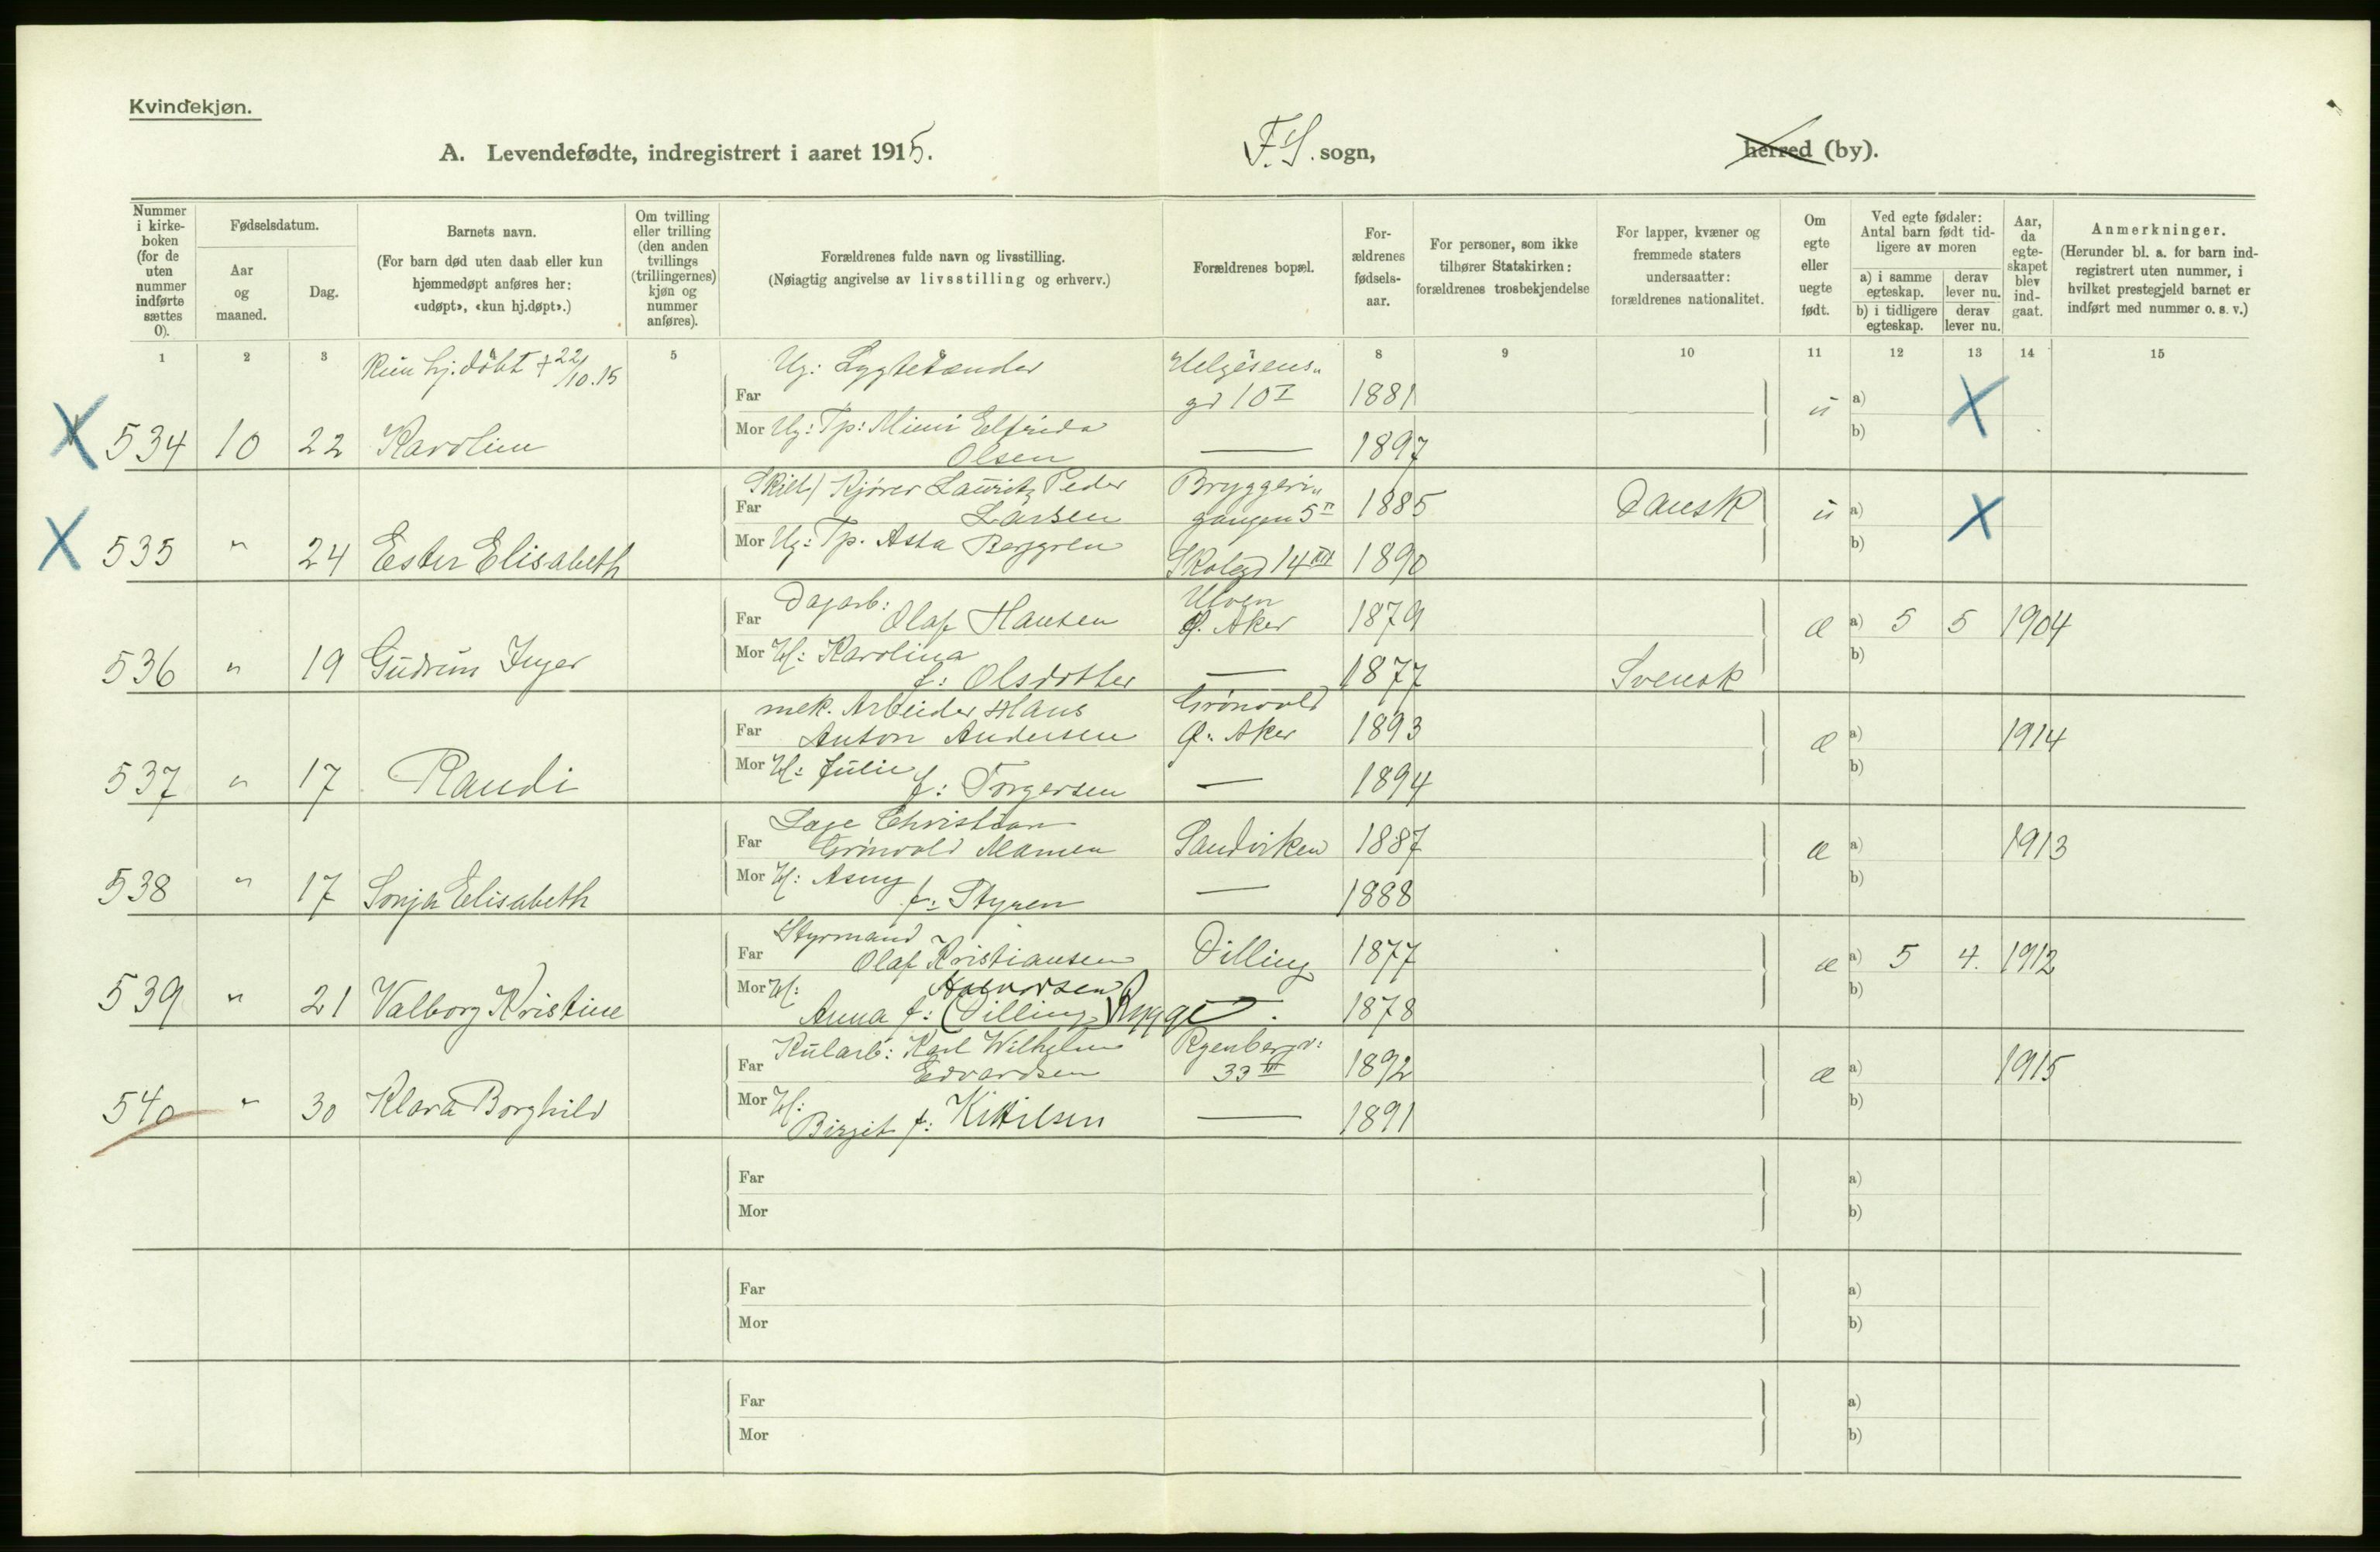 Kvindekjøn.
A. Levendefødte, indregistrert i aaret 1915.
F.S. sogn,
herred (by).
Nummer i kirkeboken (for de uten nummer indførte sættes 0).
Fødselsdatum.
Aar og maaned.
Dag.
Barnets navn.
(For barn død uten daab eller kun hjemmedøpt anføres her: «udøpt», «kun hj.døpt».)
Om tvilling eller trilling (den anden tvillings (trillingernes) kjøn og nummer anføres).
Forældrenes fulde navn og livsstilling.
(Nøiagtig angivelse av livsstilling og erhverv.)
Forældrenes bopæl.
Forældrenes fødselsaar.
For personer, som ikke tilhører Statskirken: forældrenes trosbekjendelse
For lapper, kvæner og fremmede staters undersaatter: forældrenes nationalitet.
Om egte eller uegte født.
Ved egte fødsler: Antal barn født tidligere av moren
a) i samme egteskap.
derav lever nu.
b) i tidligere egteskap.
derav lever nu.
Aar, da egteskapet blev indgaat.
Anmerkninger.
(Herunder bl. a. for barn indregistrert uten nummer, i hvilket prestegjeld barnet er indført med nummer o. s. v.)
1 2 3 5 8 9 10 11 12 13 14 15
Kun hj. døbt + 22/10.15
Ug: Lygtetænder
Helgesens"
Far gd 10 I 1881 ü a)
X 534 10 22 Karoline Mor Ug: Tp: Mimi Elfrida b) X
Olsen — 1897
Skilt) Kjører Lauritz Peder Bryggeri"
Far Larsen gangen 5 II 1885 Dansk ü a) X
X 535 " 24 Ester Elisabeth Mor Ug: Tp. Asta Berggren Skolegd 14 III 1890 b)
Dagarb: Ulven
Far Olaf Hansen Ø. Aker 1879 æ a) 5 5 1904
536 " 19 Gudrun Inger Mor H: Karolina b)
f: Olsdotter — 1877 Svensk
mek. Arbeider Hans Grönvold
Far Anton Andersen Ø. Aker 1893 æ a) 1914
537 " 17 Randi Mor H: Julie b)
f: Torgersen — 1894
Lage Christian
Far Grönvold Mamen Sandviken 1887 æ a) 1913
538 " 17 Sonja Elisabeth Mor H: Asny b)
f: Styren — 1888
Styrmand
Far Olaf Kristiansen Dilling 1877 æ a) 5 4. 1912
539 " 21 Valborg Kristine Mor H: Halvorsen b)
Anna f: (Dilling) Rygge 1878
Kularb: Karl Wilhelm Ryenbergv:
Far Edvardsen 33 III 1892 æ a) 1915
540 " 30 Klara Borghild Mor H: b)
Birgit f: Kittilsen — 1891
Far a)
Mor b)
Far a)
Mor b)
Far a)
Mor b)